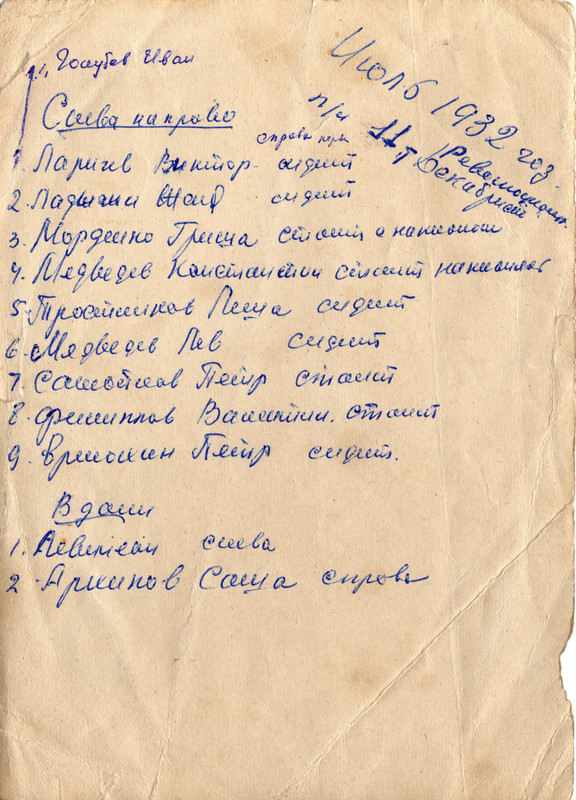 1. Голубев Иван
Июль 1932 год.
п/л 11т
Революцион.
Декабрист
Слева направо
справа
1. Ларичев Виктор - сидит
2. сидит
3. Мордвинко Гриша стоит с наклоном
4. Медведев Константин стоит наклоняясь
5. Тростников Леша сидит
6. Медведев Лев сидит
7. Самойлов Петр стоит
8. Филиппов Валентин. стоит
9. Ермошин Петр сидит.
Вдали
1. слева
2. Архипов Саша справа